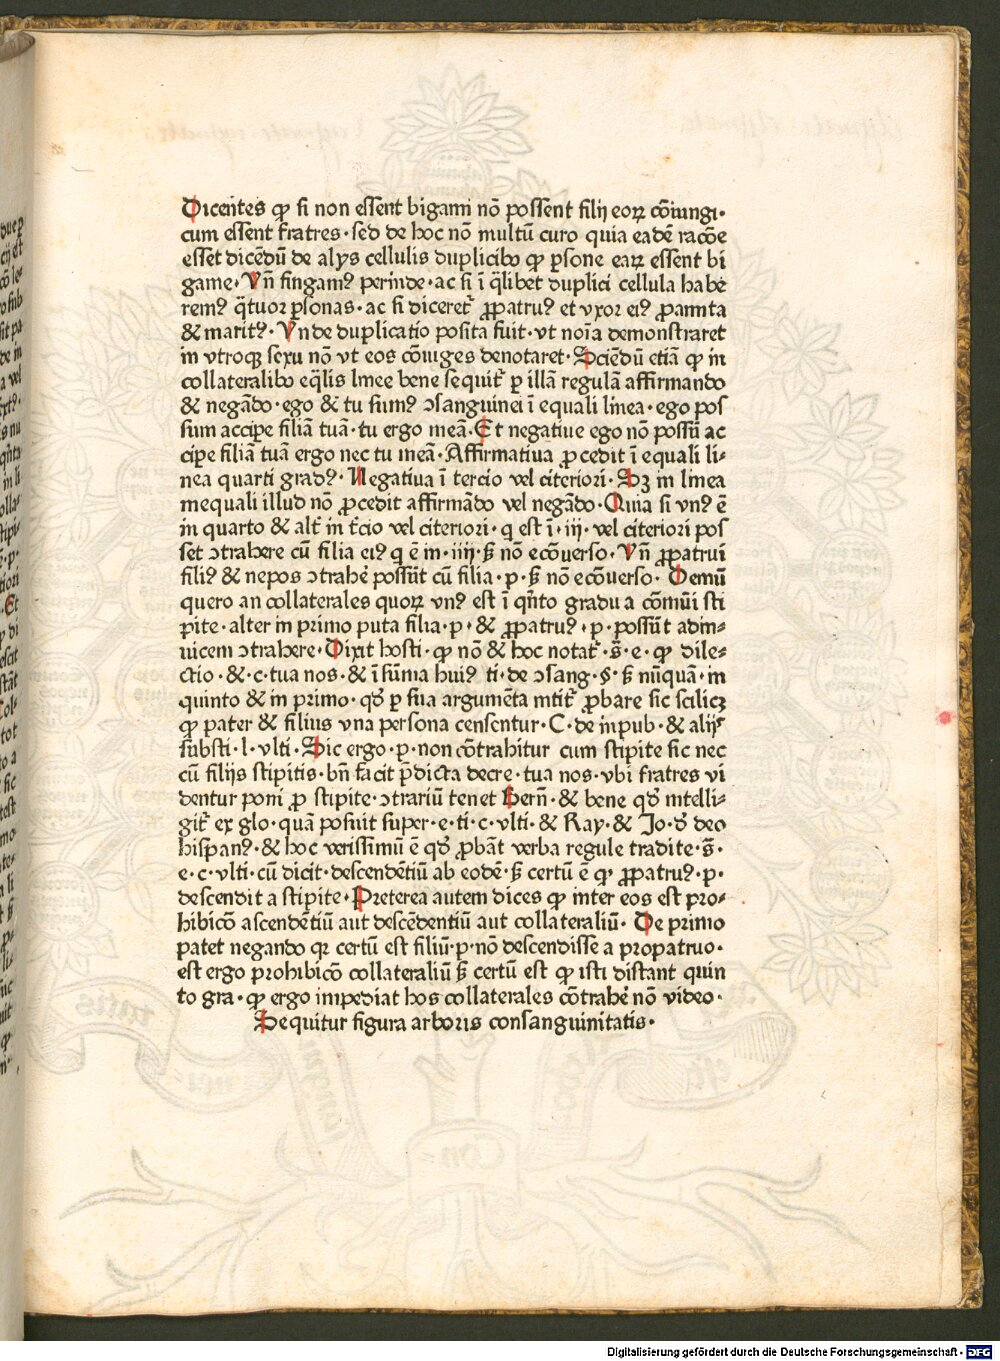 Dicentes ꝙ si non essent bigami nō possent filij eoꝝ cōiungi·
cum essent fratres·sed de hoc nō multū curo quia eadē racōe
esset dicēdū de alys cellulis duplicibꝰ ꝙ ꝑsone eaꝝ essent bi
game·Vn̄ fingamꝰ perinde·ac si ī q̄libet duplici cellula habē
remꝰ q̄tuor ꝑsonas·ac si diceret᷑ ꝓpatruꝰ et vxor eiꝰ ꝓamita
& maritꝰ·Vnde duplicatio posita fuit·vt noīa demonstraret
in vtroqꝫ sexu nō vt eos cōiuges denotaret·Sciēdū etiā ꝙ in
collateralibꝰ eq̄lis linee bene sequit᷑ ꝑ illā regulā affirmando
& negādo·ego & tu sumꝰ ↄsanguinei ī equali linea·ego pos
sum accipe filiā tuā·tu ergo meā·Et negatiue ego nō possū ac
cipe filiā tuā ergo nec tu meā·Affirmatiua ꝓcedit ī equali li⸗
nea quarti gradꝰ·Negatiua ī tercio vel citeriori·Sꝫ in linea
inequali illud nō ꝓcedit affirmādo vel negādo·Quia si vnꝰ ē
in quarto & alt̄ in t̄cio vel citeriori·q est ī·iij·vel citeriori pos
set ↄtrahere cū filia eiꝰ q ē in·iiij·ꝫ nō ecōuerso·Vn̄ ꝓpatrui
filiꝰ & nepos ↄtrahē possūt cū filia·p·ꝫ nō ecōuerso· Demū
quero an collaterales quoꝝ vnꝰ est ī qn̄to gradu a cōmūi sti
pite·alter in primo puta filia·p·& ꝓpatruꝰ·p·possūt adin⸗
uicem ↄtrahere·Dixit hosti·ꝙ nō & hoc notat᷑·s̄·e·ꝙ dile⸗
ctio·&·c·tua nos·& ī sūma huiꝰ ti·de ↄsang·§·ꝫ nūquā·in
quinto & in primo·qd̄ ꝑ sua argumēta nitit᷑ ꝓbare sic scilicꝫ
ꝙ pater & filius vna persona censentur·C·de inpub·& alijs
substi·l·vlti·Sic ergo·p·non cōtrahitur cum stipite sic nec
cū filijs stipitis·bn̄ facit p̄dicta decre·tua nos·vbi fratres vi
dentur poni ꝓ stipite·ↄtrariū tenet Bern̄·& bene qd̄ intelli⸗
git᷑ ex glo·quā posuit super·e·ti·c·vlti·& Ray·& Jo·d̄ deo
hispanꝰ·& hoc verissimū ē qd̄ ꝓbāt verba regule tradite·s̄·
e·c·vlti·cū dicit·descendētiū ab eodē·ꝫ certū ē ꝙ ꝓpatruꝰ·p·
descendit a stipite·Preterea autem dices ꝙ inter eos est pro⸗
hibicō ascendētiū aut descēdentiū aut collateraliū· De primo
patet negando qꝛ certū est filiū·p·nō descendisse a propatruo·
est ergo prohibicō collateraliū ꝫ certū est ꝙ isti distant quin
to gra·ꝙ ergo impediat hos collaterales cōtrahē nō video·
Sequitur figura arboris consanguinitatis·
Digitalisierung gefördert durch die Deutsche Forschungsgemeinschaft - DFG